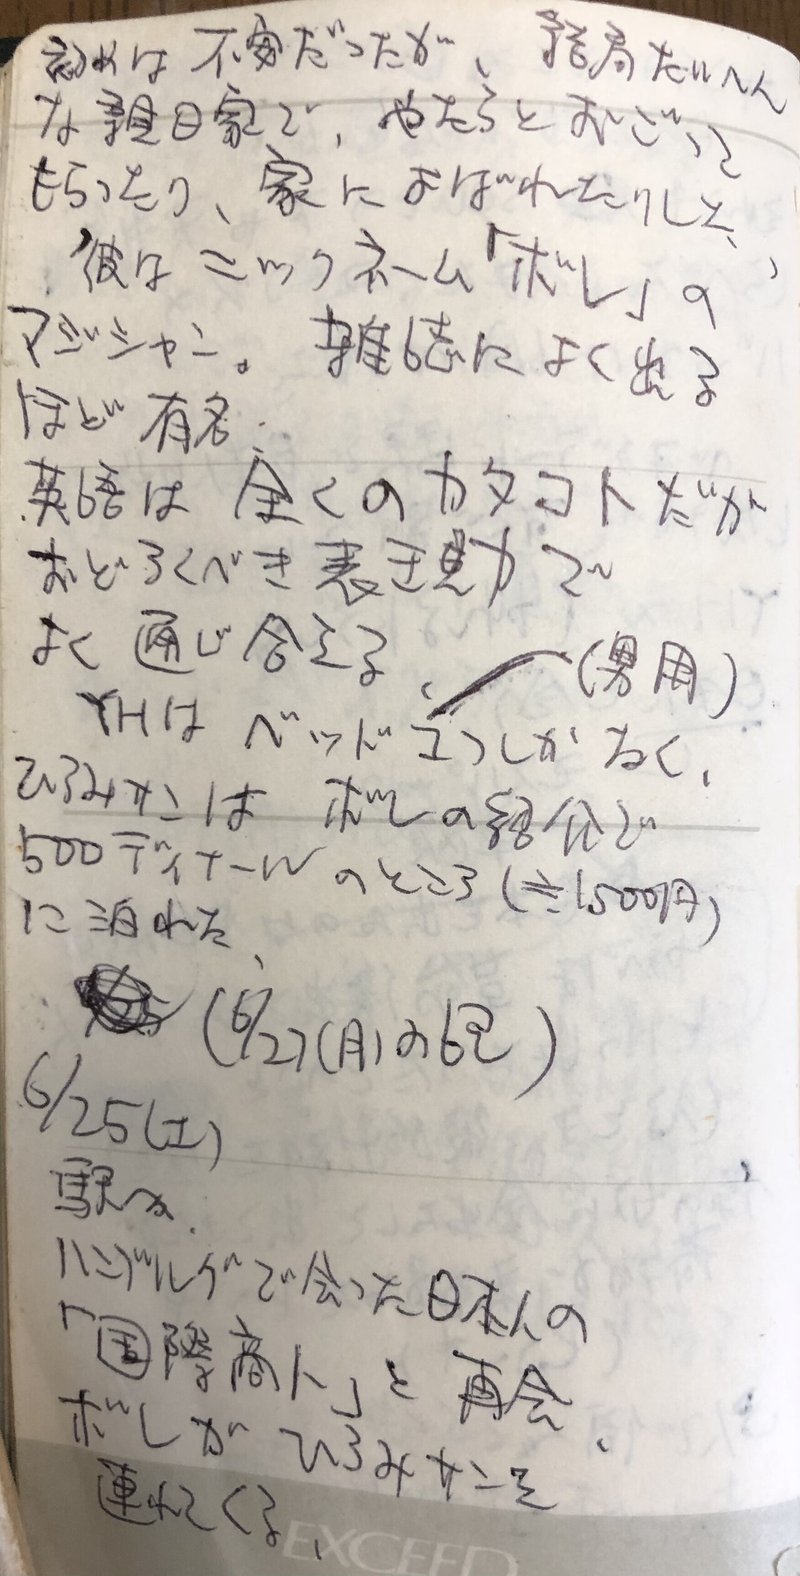 初めは不安だったが、結局たいへん
な親日家で、やたらとおごって
もらったり、家によばれたりした、
彼はニックネーム「ボレ」の
マジシャン。雑誌によく出る
ほど有名.
英語は全くのカタコトだが
おどろくべき表現力で
よく通じ合える、
(男用)
YHはベッド1つしかなく、
ひろみサンはボレの紹介で
500ディナールのところ(≒1500円)
に泊れた、
(6/27(月)の記)
6/25(土)
駅へ.
ハンブルグで会った日本人の
「国際商人」と再会、
ボレがひろみサンを
連れてくる、
EXCEED